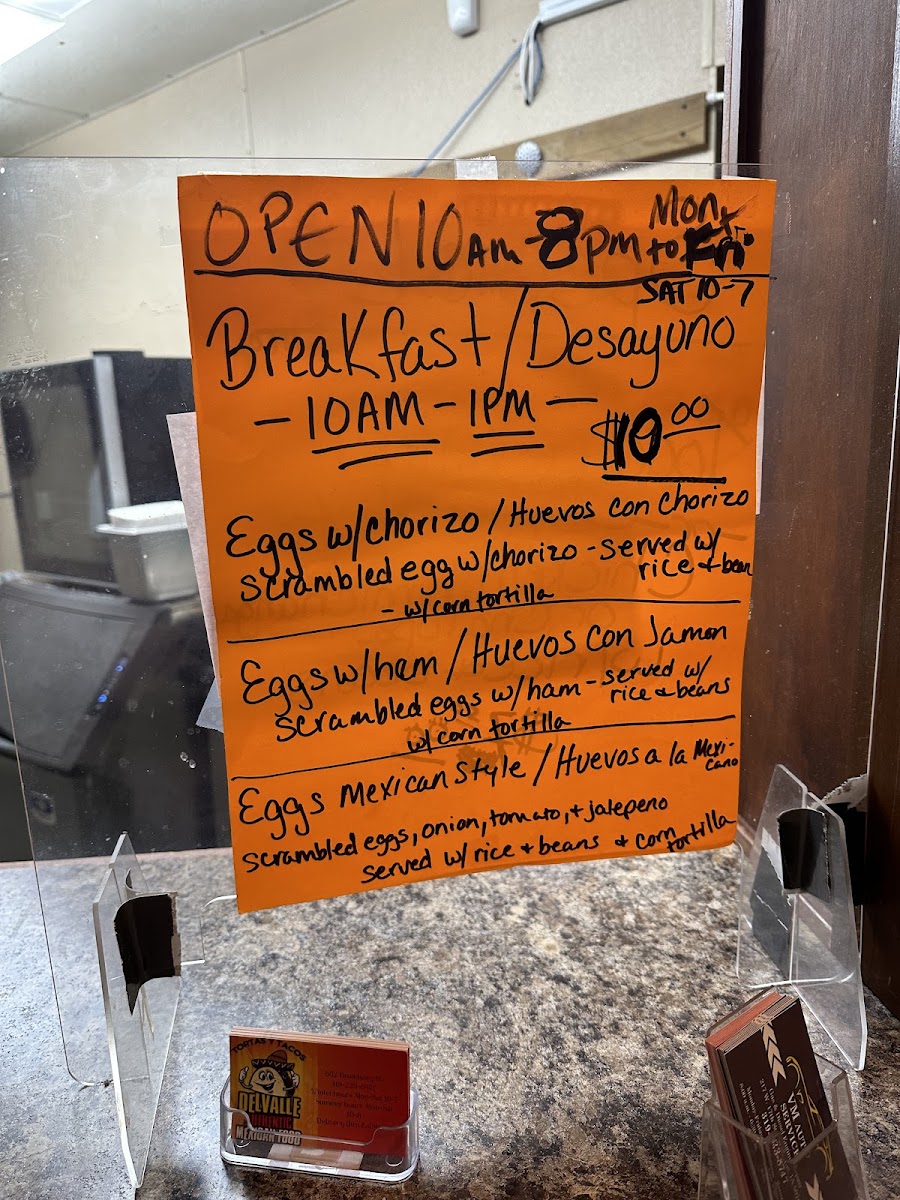 OPEN 10AM - 8PM Mon to Fri
SAT 10-7
Breakfast/Desayuno
- 10AM - 1PM -
$10.00
Eggs w/chorizo / Huevos con chorizo
scrambled egg w/chorizo - served w/
rice + bean
- w/corn tortilla
Eggs w/ham / Huevos con Jamon
scrambled eggs w/ham - served w/
rice & beans
w/ corn tortilla
Eggs Mexican Style / Huevos a la Mexi-
cano
scrambled eggs, onion, tomato, + jalepeno
served w/ rice + beans + corn
tortilla
TORTAS Y TACOS
DELVALLE
AUTHENTIC
MEXICAN FOOD
VM AUTO
SERVICE